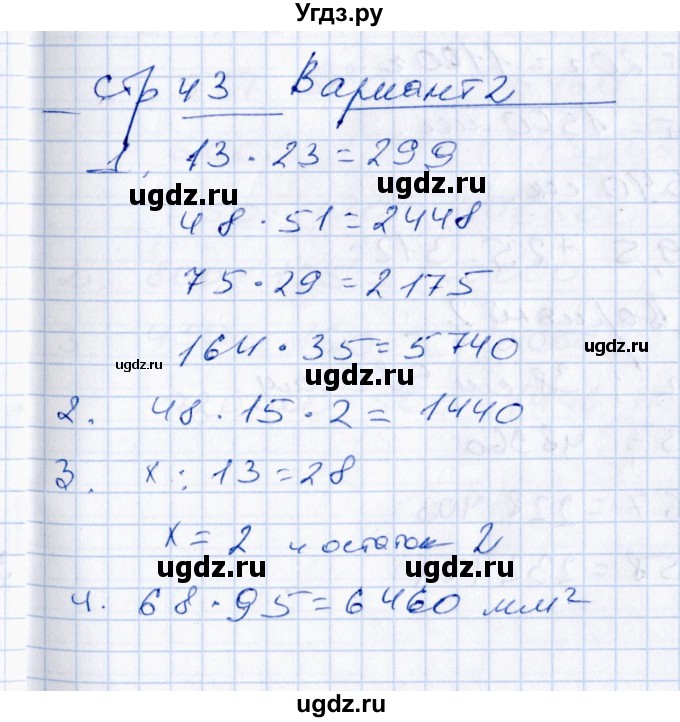 Угдз.ру
Стр 43 Вариант 2
1. 13 · 23 = 299
ugdz.ru ugdz.ru
48 · 51 = 2448
75 · 29 = 2175
164 · 35 = 5740
ugdz.ru ugdz.ru ugdz.ru
2. 48 · 15 · 2 = 1440
3. x : 13 = 28
x = 2 и остаток 2
ugdz.ru ugdz.ru
4. 68 · 95 = 6460 мм²
ugdz.ru